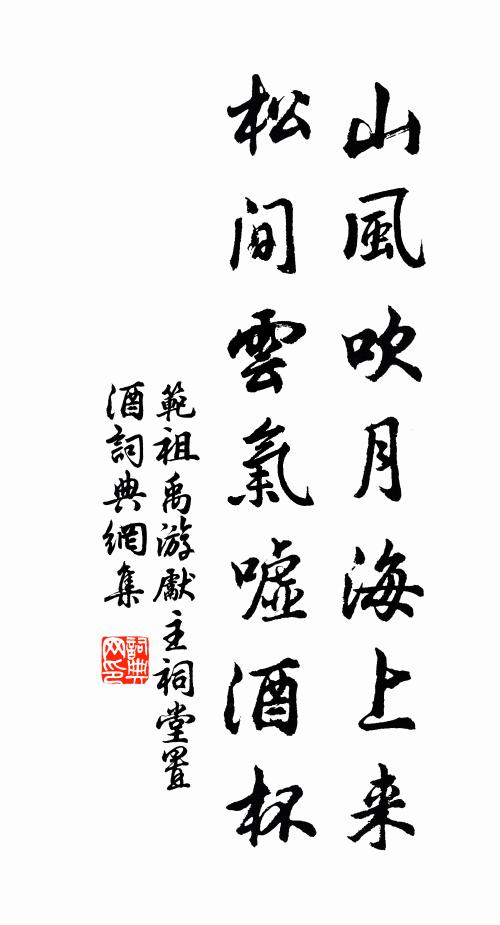 山風吹月海上来
松間雲氣嘘酒杯
範祖禹游獻主祠堂置
酒詞典網集
詞典
网印